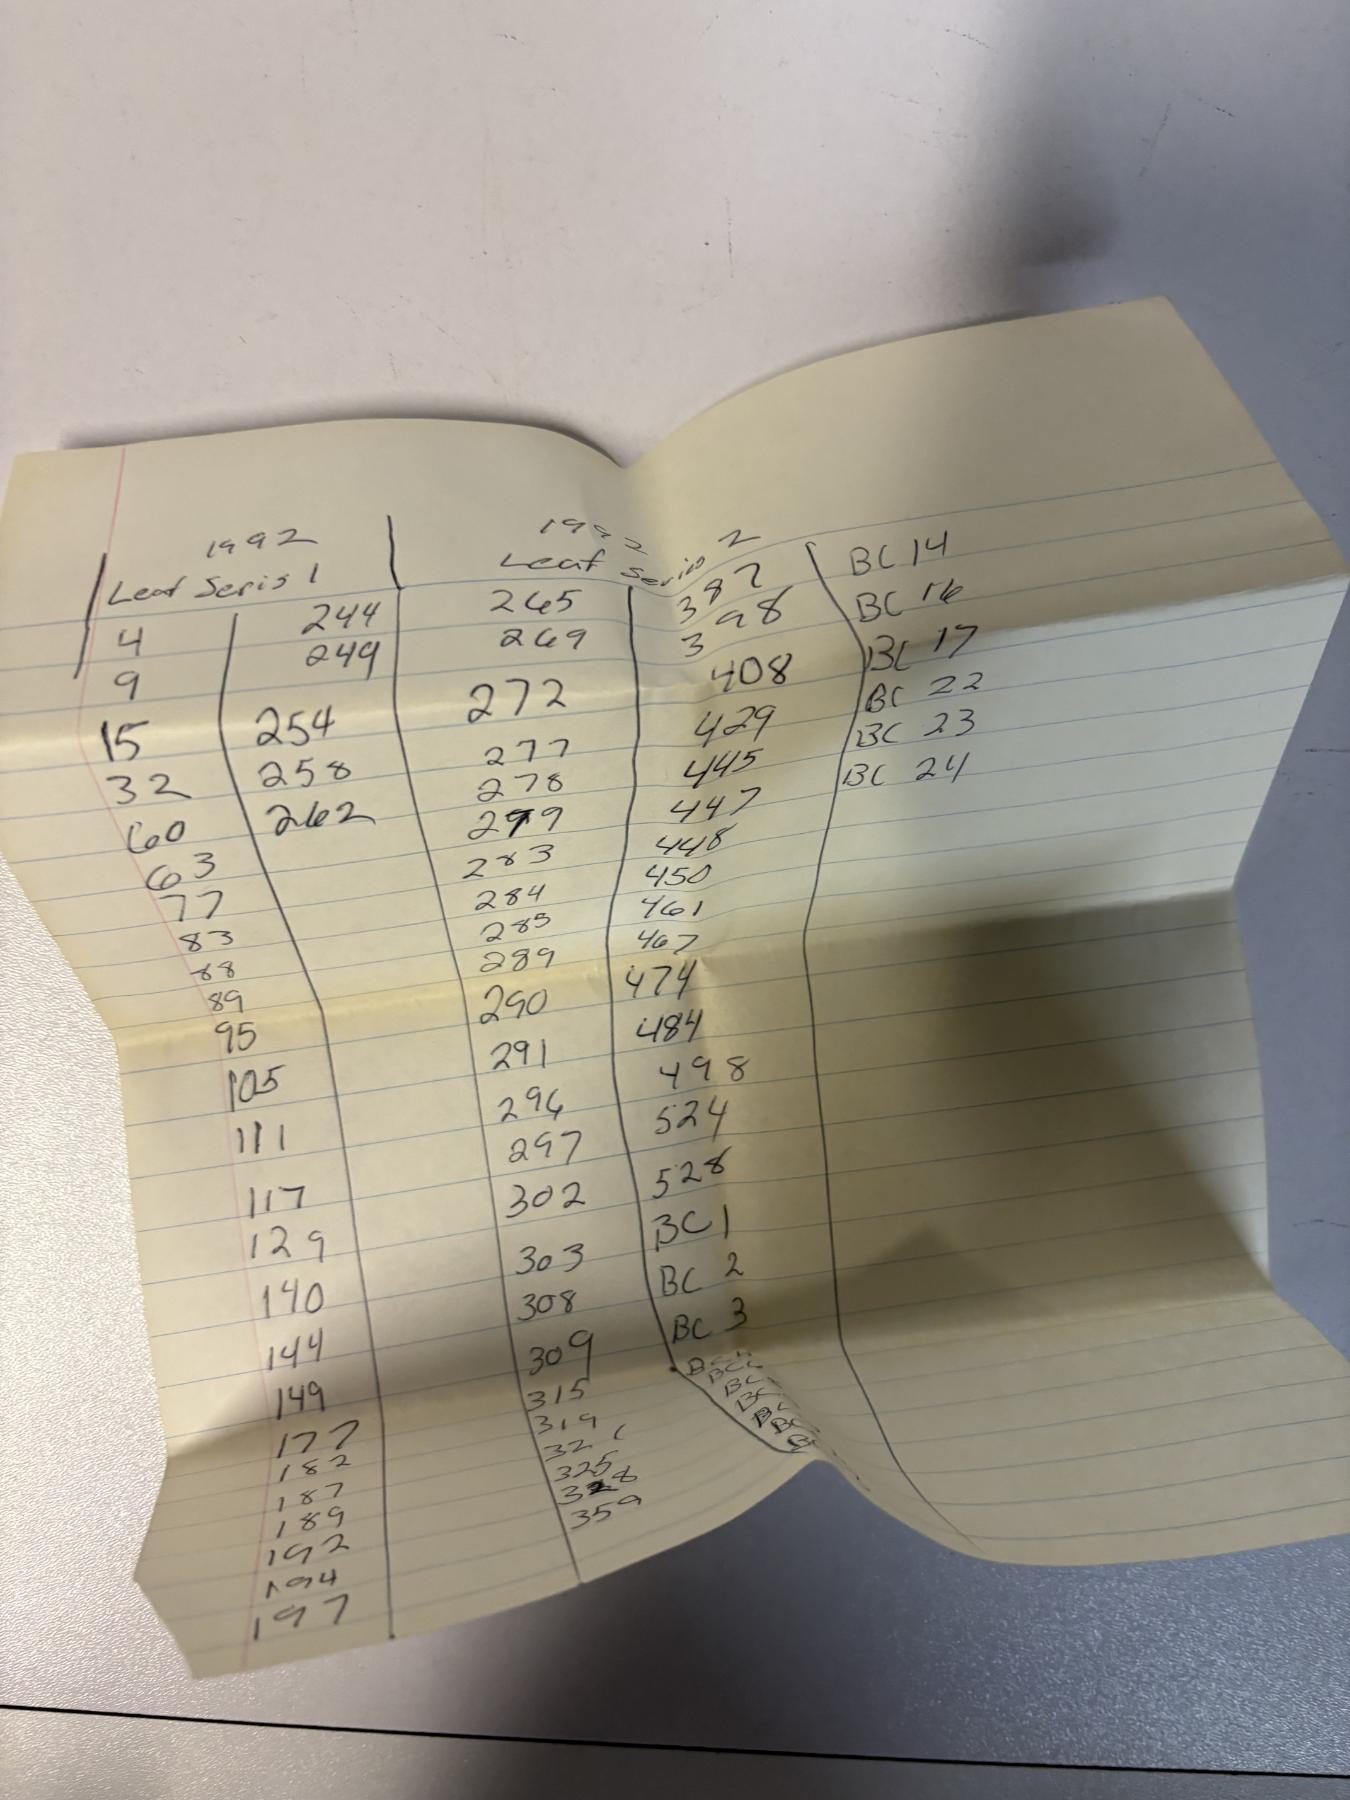 1992
Leaf Seris 1
4
9
15
32
60
63
77
83
88
89
95
105
111
117
129
140
144
149
177
182
187
189
192
194
197
244
249
254
258
262
1992
Leaf Series 2
265
269
272
277
278
279
283
284
285
289
290
291
296
297
302
303
308
309
315
319
321
325
328
359
387
398
408
429
445
447
448
450
461
467
474
484
498
524
528
BC 1
BC 2
BC 3
BC
BC
BC
BC
BC
BC
BC 14
BC 16
BC 17
BC 22
BC 23
BC 24